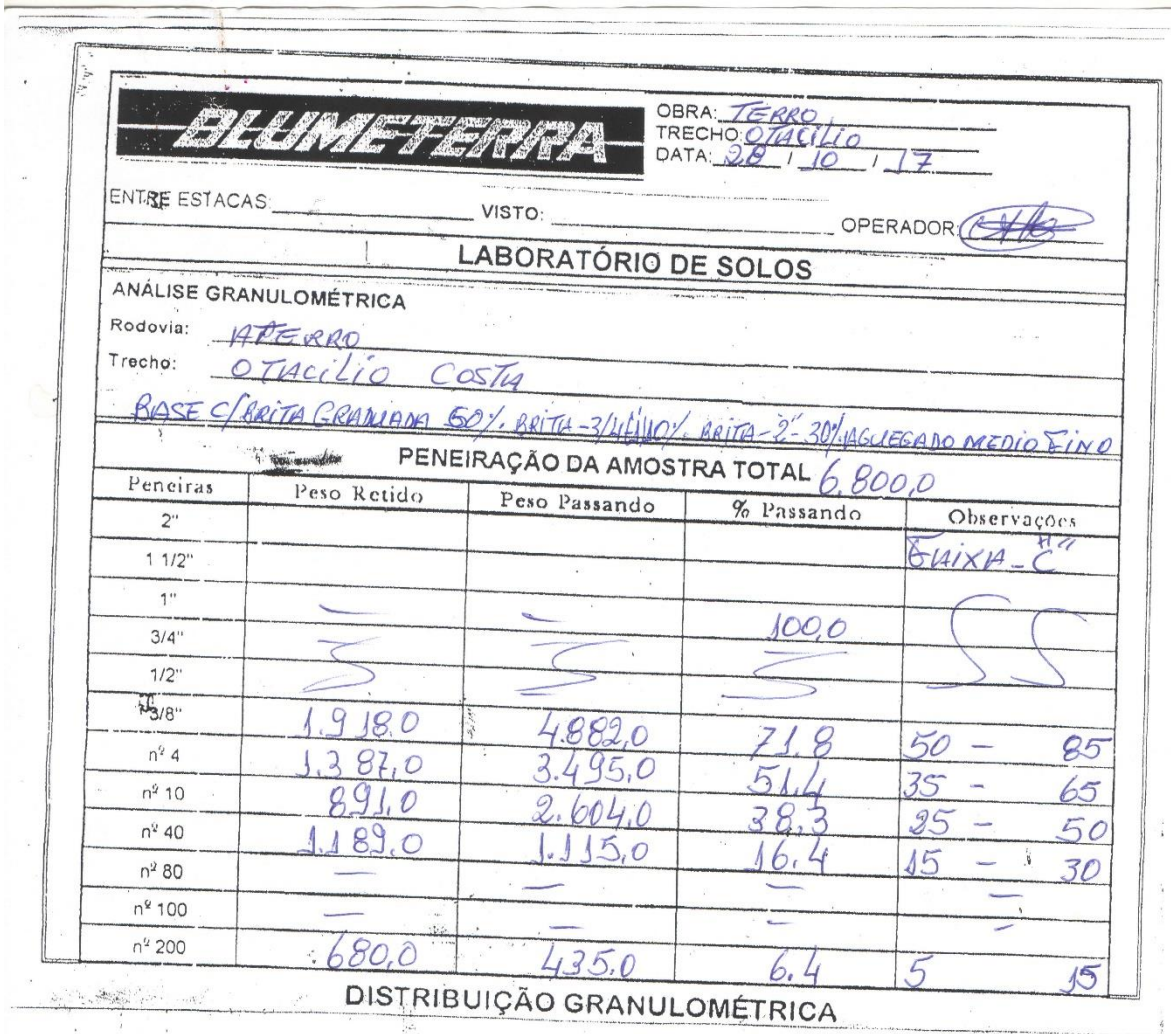 BLUMETERRA
OBRA: TERRO
TRECHO: OTACILIO
DATA: 28 / 10 / 17
ENTRE ESTACAS: VISTO: OPERADOR:
LABORATÓRIO DE SOLOS
ANÁLISE GRANULOMÉTRICA
Rodovia: ATERRO
Trecho: OTACILIO COSTA
BASE C/ BRITA GRADUADA 50% BRITA - 3/4 10% BRITA - 2" - 30% AGUEGADO MEDIO FINO
PENEIRAÇÃO DA AMOSTRA TOTAL 6.800,0
Peneiras Peso Retido Peso Passando % Passando Observações
2"
1 1/2" FAIXA - "C"
1" — — 100,0
3/4"
1/2"
3/8" 1.918.0 4.882,0 71.8 50 - 85
nº 4 1.387,0 3.495,0 51.4 35 - 65
nº 10 891.0 2.604,0 38,3 25 - 50
nº 40 1.189,0 1.115,0 16.4 15 - 30
nº 80 — — — =
nº 100 — — — -
nº 200 680,0 435.0 6.4 5 15
DISTRIBUIÇÃO GRANULOMÉTRICA